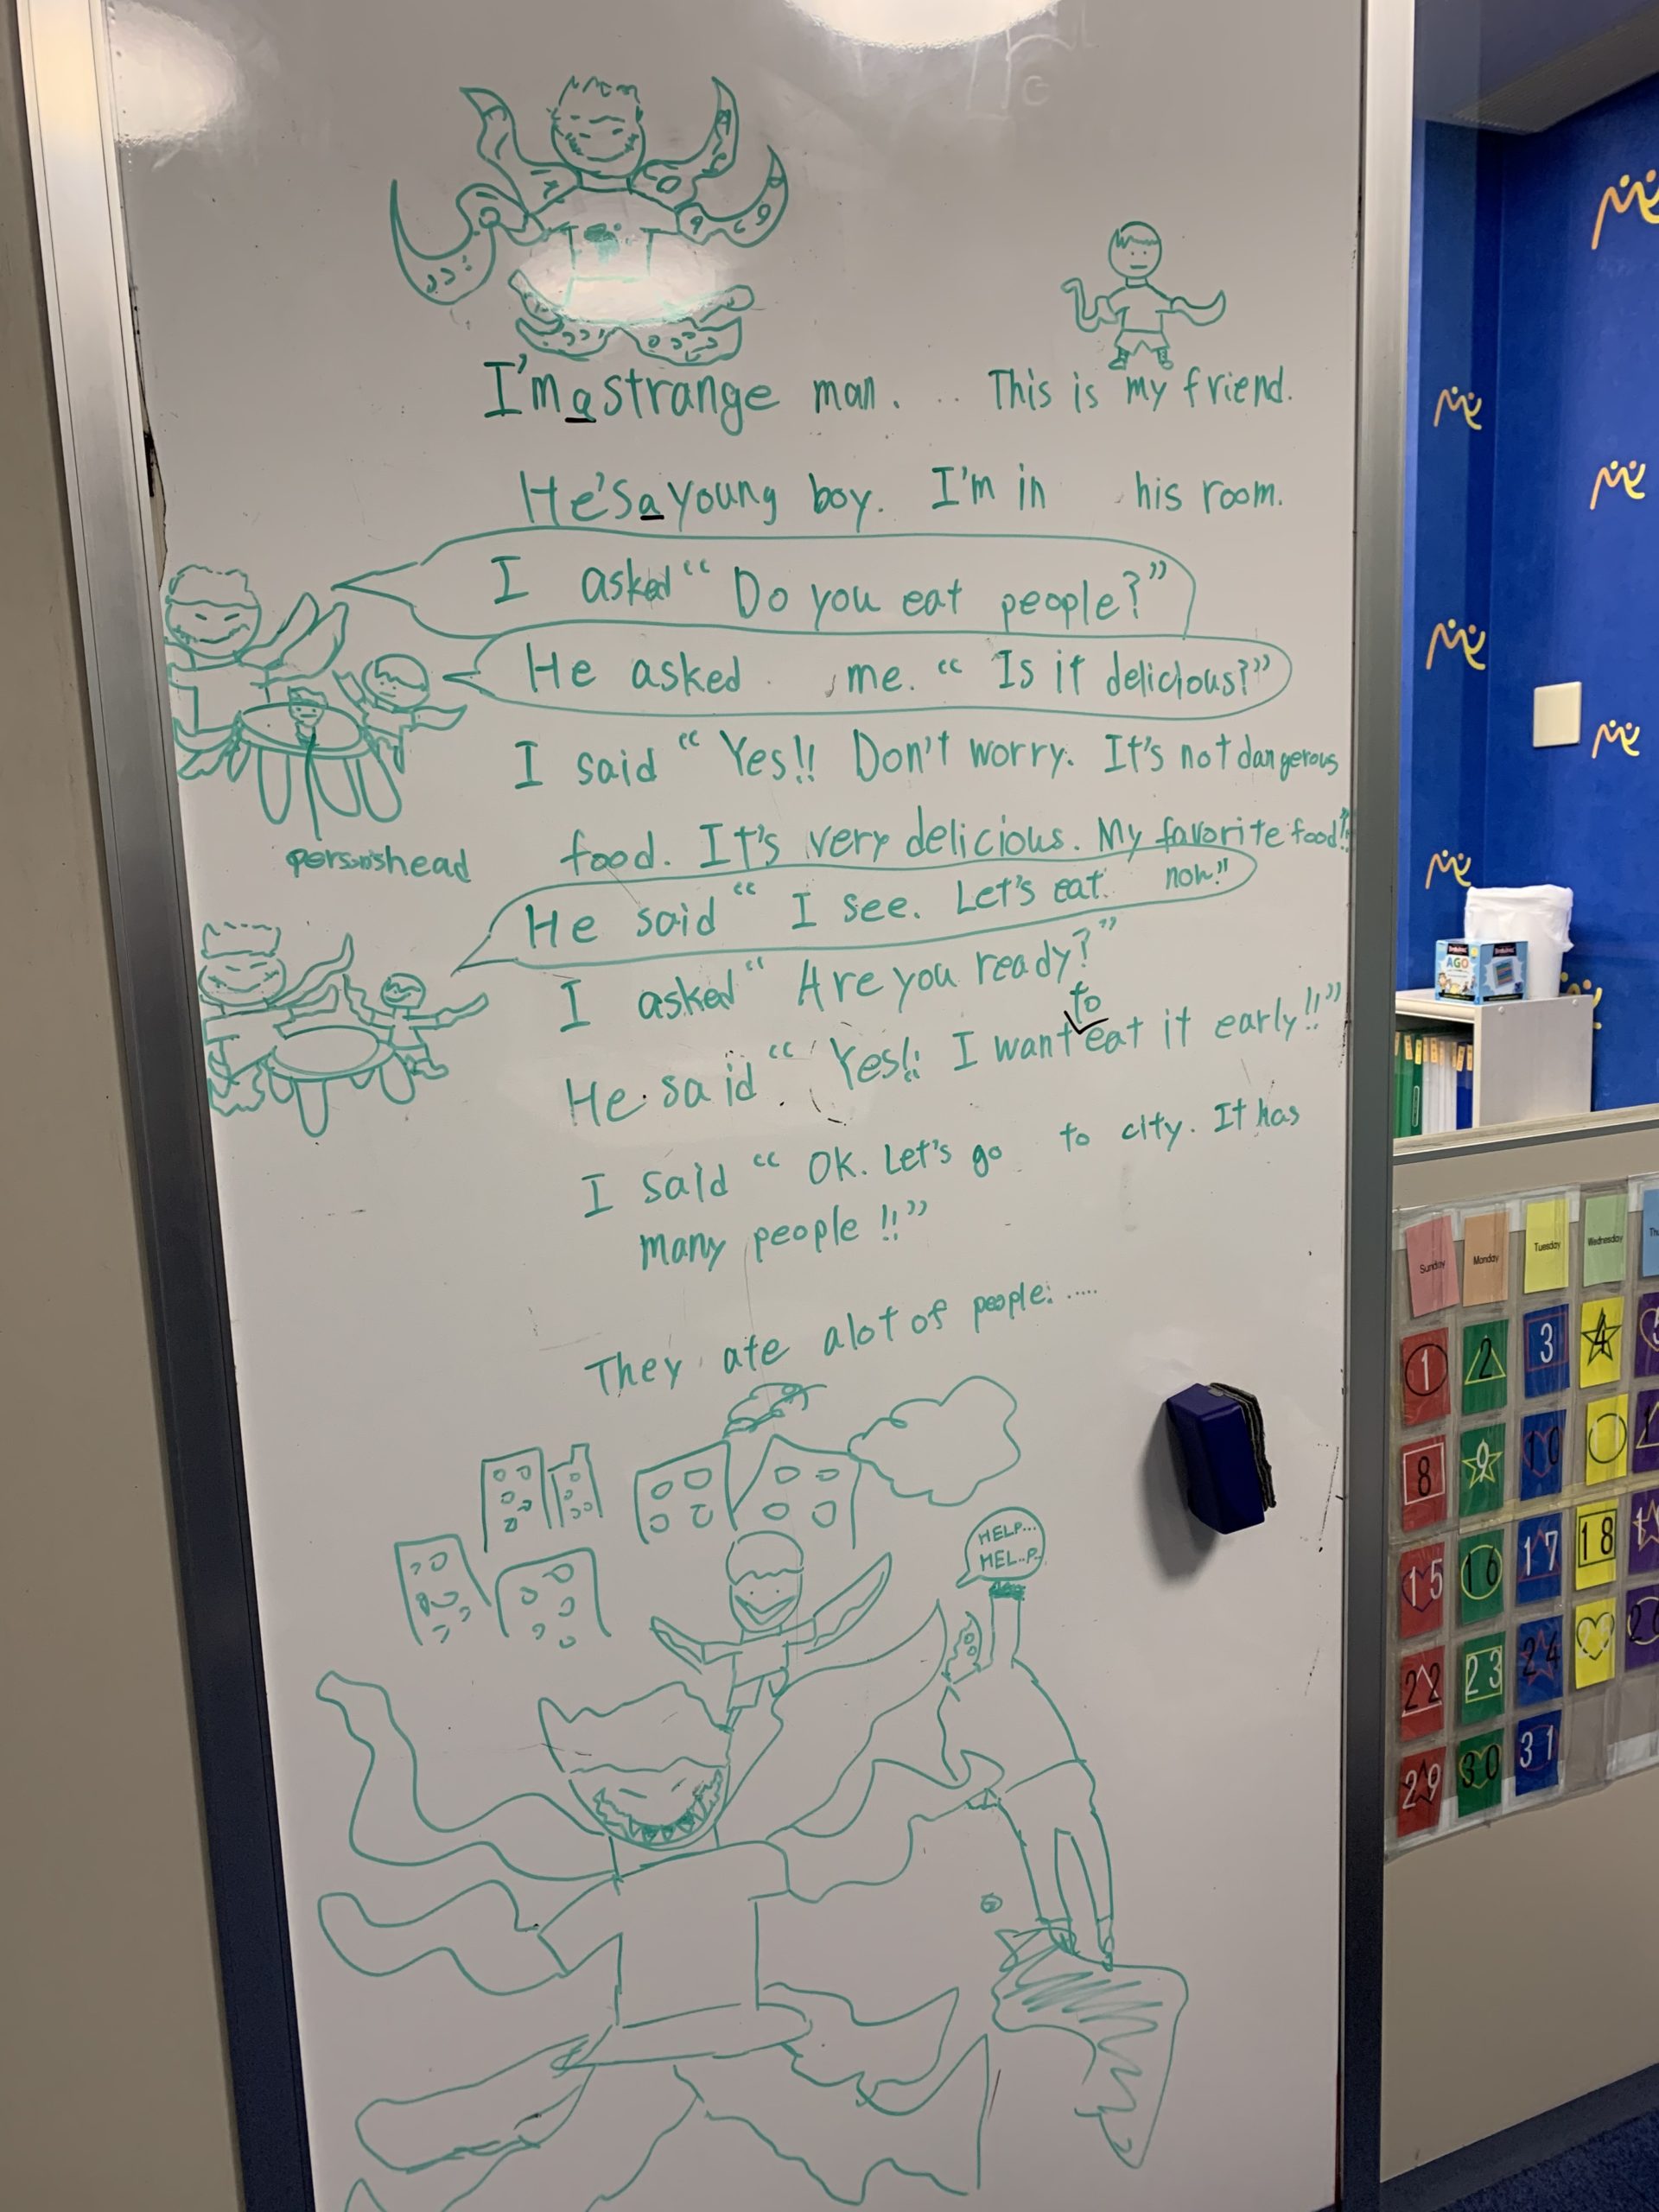 I'm a strange man. .. This is my friend.
He's a young boy. I'm in his room.
I asked “ Do you eat people?”
He asked me. “ Is it delicious?”
I said “ Yes!! Don't worry. It's not dangerous
food. It's very delicious. My favorite food!!
person's head
He said “ I see. Let's eat. now.”
I asked “ Are you ready?”
to
He said “ Yes!! I want eat it early!!”
I said “ OK. Let's go to city. It has
many people !!”
They ate alot of people: .....
HELP...
HEL..P..
AGO
Sunday Monday Tuesday Wednesday Thu
1 2 3 4
8 9 10
15 16 17 18
22 23 24
29 30 31